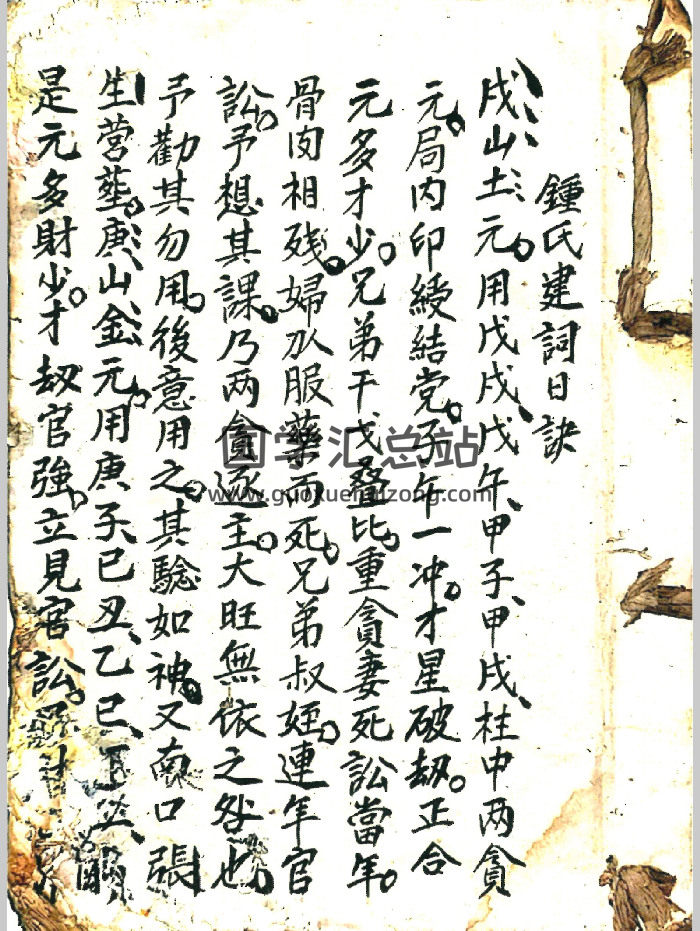 鍾氏建詞日訣
戌山土元。用戊戌、戊午、甲子、甲戌、柱中两貪
元。局内印綬結党。子午一冲。才星破劫。正合
元多才少。兄弟干戈叠比。重貪妻死訟當年。
骨肉相残。婦以服藥而死。兄弟叔姪。連年官
訟。予想其課。乃两貪逐主。大旺無依之咎也。
予勸其勿用。後意用之。其騐如神。又南口張
生营塟。庚山金元。用庚子、己丑、乙巳、
是元多財少。才劫官強。立見官訟。
国学汇总站
www.guoxuehuizong.com